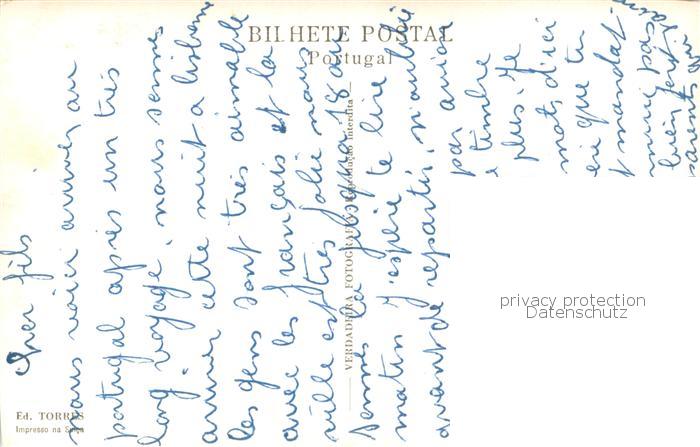 BILHETE POSTAL
Portugal
Cher fils
nous voici arrivés au
portugal après un très
long voyage, nous sommes
arriver cette nuit a lisbonne
les gens sont très aimable
avec les français et la
ville est très jolie nous
sommes la jusqua 18
matin j'espère te lire
avant de repartir, n'oublie
pas
timbre
plus. Je
mots d'ici
que tu
mandat
pas
bien
VERDADEIRA FOTOGRAFIA
Reprodução interdita
Ed. TORRES
Impresso na Suíça
privacy protection
Datenschutz